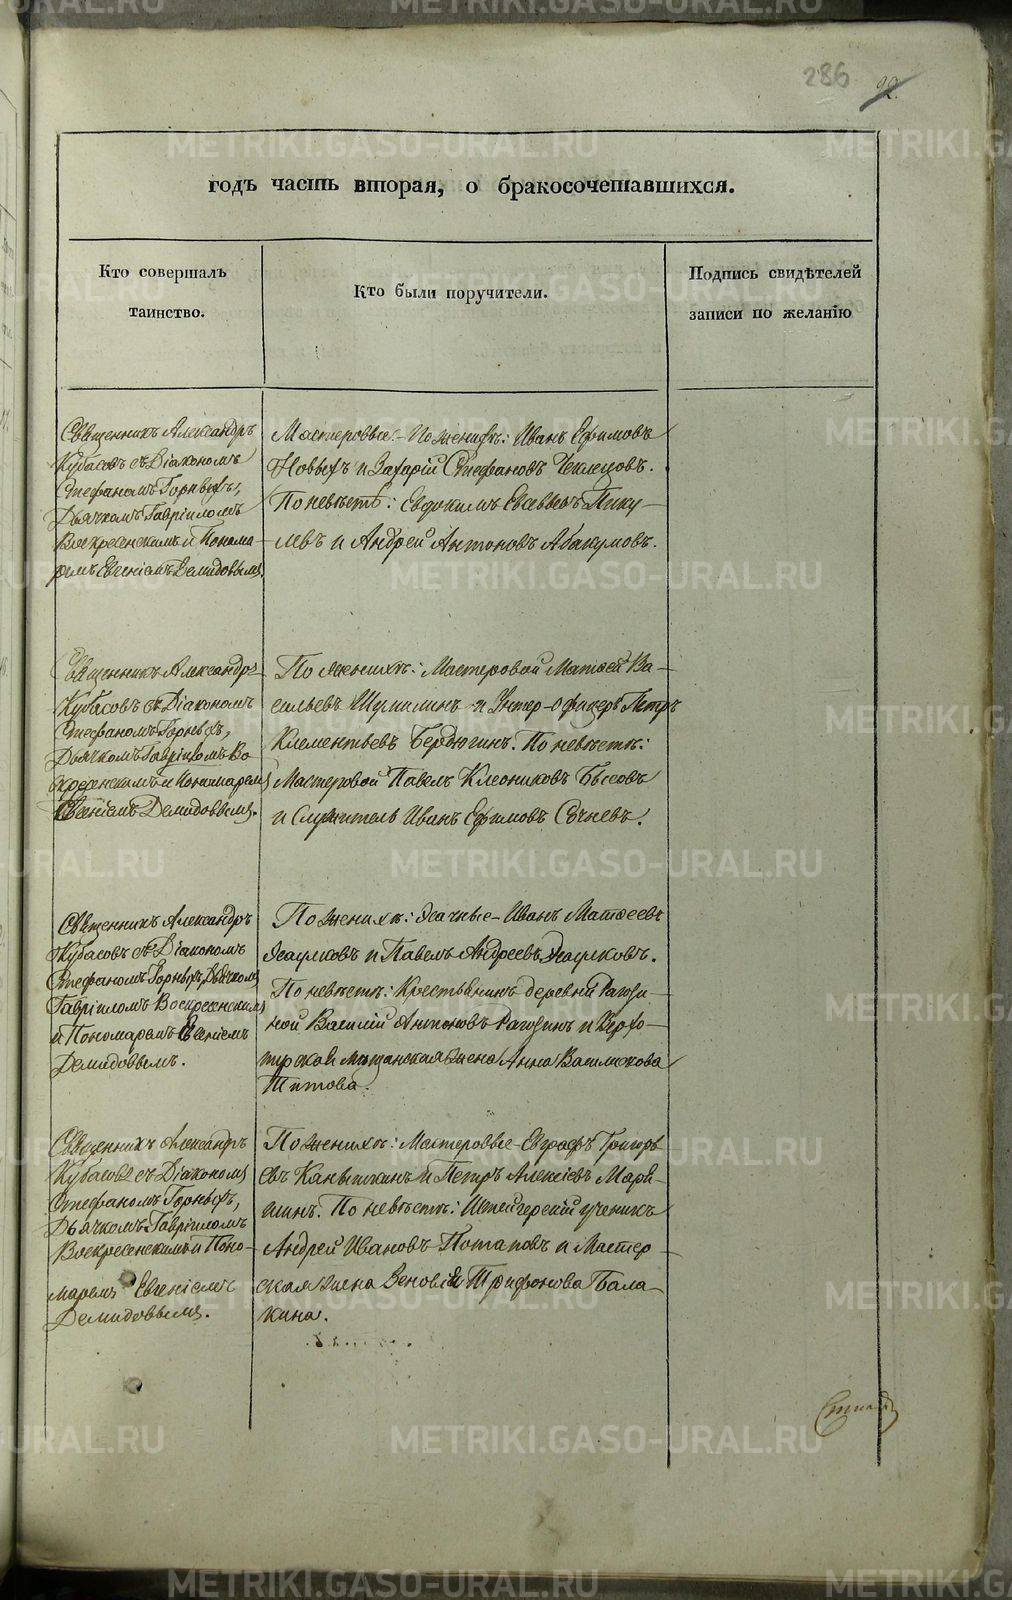 286
22.
годъ часть вторая, о бракосочетавшихся.
Кто совершалъ
таинство.
Кто были поручители.
Подпись свидѣтелей
записи по желанію
Священникъ Александръ
Кубасовъ съ Діакономъ
Стефаномъ Горныхъ,
Дьячкомъ Гавріиломъ
Воскресенскимъ и Понома-
ремъ Евгеніемъ Демидовымъ.
Мастеровые: По женихѣ: Иванъ Ефимовъ
Новыхъ и Захарій Стефановъ Чеклецовъ.
По невѣстѣ: Евдокимъ Евсевьевъ Пику-
левъ и Андрей Антоновъ Абакумовъ.
Священникъ Александръ
Кубасовъ съ Діакономъ
Стефаномъ Горныхъ,
Дьячкомъ Гавріиломъ Во-
скресенскимъ и Пономаремъ
Евгеніемъ Демидовымъ.
По женихѣ: Мастеровой Матвей Ва-
сильевъ Шумилинъ и Унтер-Офицеръ Петръ
Клементьевъ Бердюгинъ. По невѣстѣ:
Мастеровой Павелъ Клеониковъ Бысовъ
и Служитель Иванъ Ефимовъ Сочневъ.
Священникъ Александръ
Кубасовъ съ Діакономъ
Стефаномъ Горныхъ, Дьячкомъ
Гавріиломъ Воскресенскимъ
и Пономаремъ Евгеніемъ
Демидовымъ.
По женихѣ: Иванъ Матвеевъ
и Павелъ Андреевъ
По невѣстѣ: Крестьянинъ деревни Рагози-
ной Василій Антоновъ Рагозинъ и Верхо-
турская мѣщанская жена Анна Василькова
Титова.
Священникъ Александръ
Кубасовъ съ Діакономъ
Стефаномъ Горныхъ,
Дьячкомъ Гавріиломъ
Воскресенскимъ и Поно-
маремъ Евгеніемъ
Демидовымъ.
По женихѣ: Мастеровые Евграфъ Григорь-
евъ Каныгинъ и Петръ Алексіевъ Марь-
инъ. По невѣстѣ: Штейгерскій ученикъ
Андрей Ивановъ Потаповъ и Мастер-
ская жена Зеновія Трифонова Бала-
кина.
METRIKI.GASO-URAL.RU